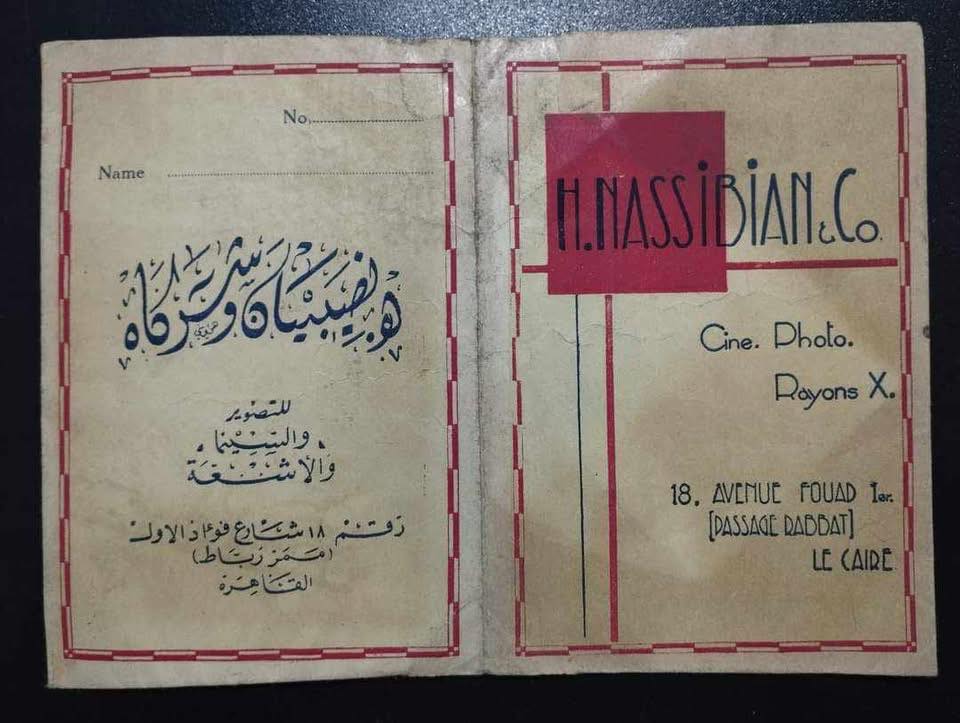 No.
Name
ه. نصيبيان وشركاه
للتصوير
والسينما
والأشعة
رقم ١٨ شارع فؤاد الاول
(ممر رباط)
القاهرة
H. NASSiBiAN & Co.
Cine. Photo.
Rayons X.
18, AVENUE FOUAD Ier.
[PASSAGE RABBAT]
LE CAIRE